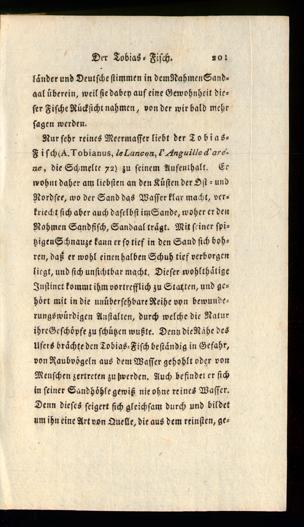 Der Tobias-Fisch. 201
länder und Deutsche stimmen in dem Nahmen Sand-
aal überein, weil sie dabey auf eine Gewohnheit die-
ser Fische Rücksicht nahmen, von der wir bald mehr
sagen werden.
Nur sehr reines Meerwasser liebt der Tobias-
Fisch (A. Tobianus, le Lançon, l'Anguille d'aré-
ne, die Schmelte 72) zu seinem Aufenthalt. Er
wohnt daher am liebsten an den Küsten der Ost- und
Nordsee, wo der Sand das Wasser klar macht, ver-
kriecht sich aber auch daselbst im Sande, woher er den
Nahmen Sandfisch, Sandaal trägt. Mit seiner spi-
zigen Schnauze kann er so tief in den Sand sich boh-
ren, daß er wohl einen halben Schuh tief verborgen
liegt, und sich unsichtbar macht. Dieser wohlthätige
Instinct kommt ihm vortrefflich zu Statten, und ge-
hört mit in die unübersehbare Reihe von bewunde-
rungswürdigen Anstalten, durch welche die Natur
ihre Geschöpfe zu schützen wußte. Denn die Nähe des
Ufers brächte den Tobis-Fisch beständig in Gefahr,
von Raubvögeln aus dem Wasser gehohlt oder von
Menschen zertreten zu werden. Auch befindet er sich
in seiner Sandhöhle gewiß nie ohne reines Wasser.
Denn dieses seigert sich gleichsam durch und bildet
um ihn eine Art von Quelle, die aus dem reinsten, ge-